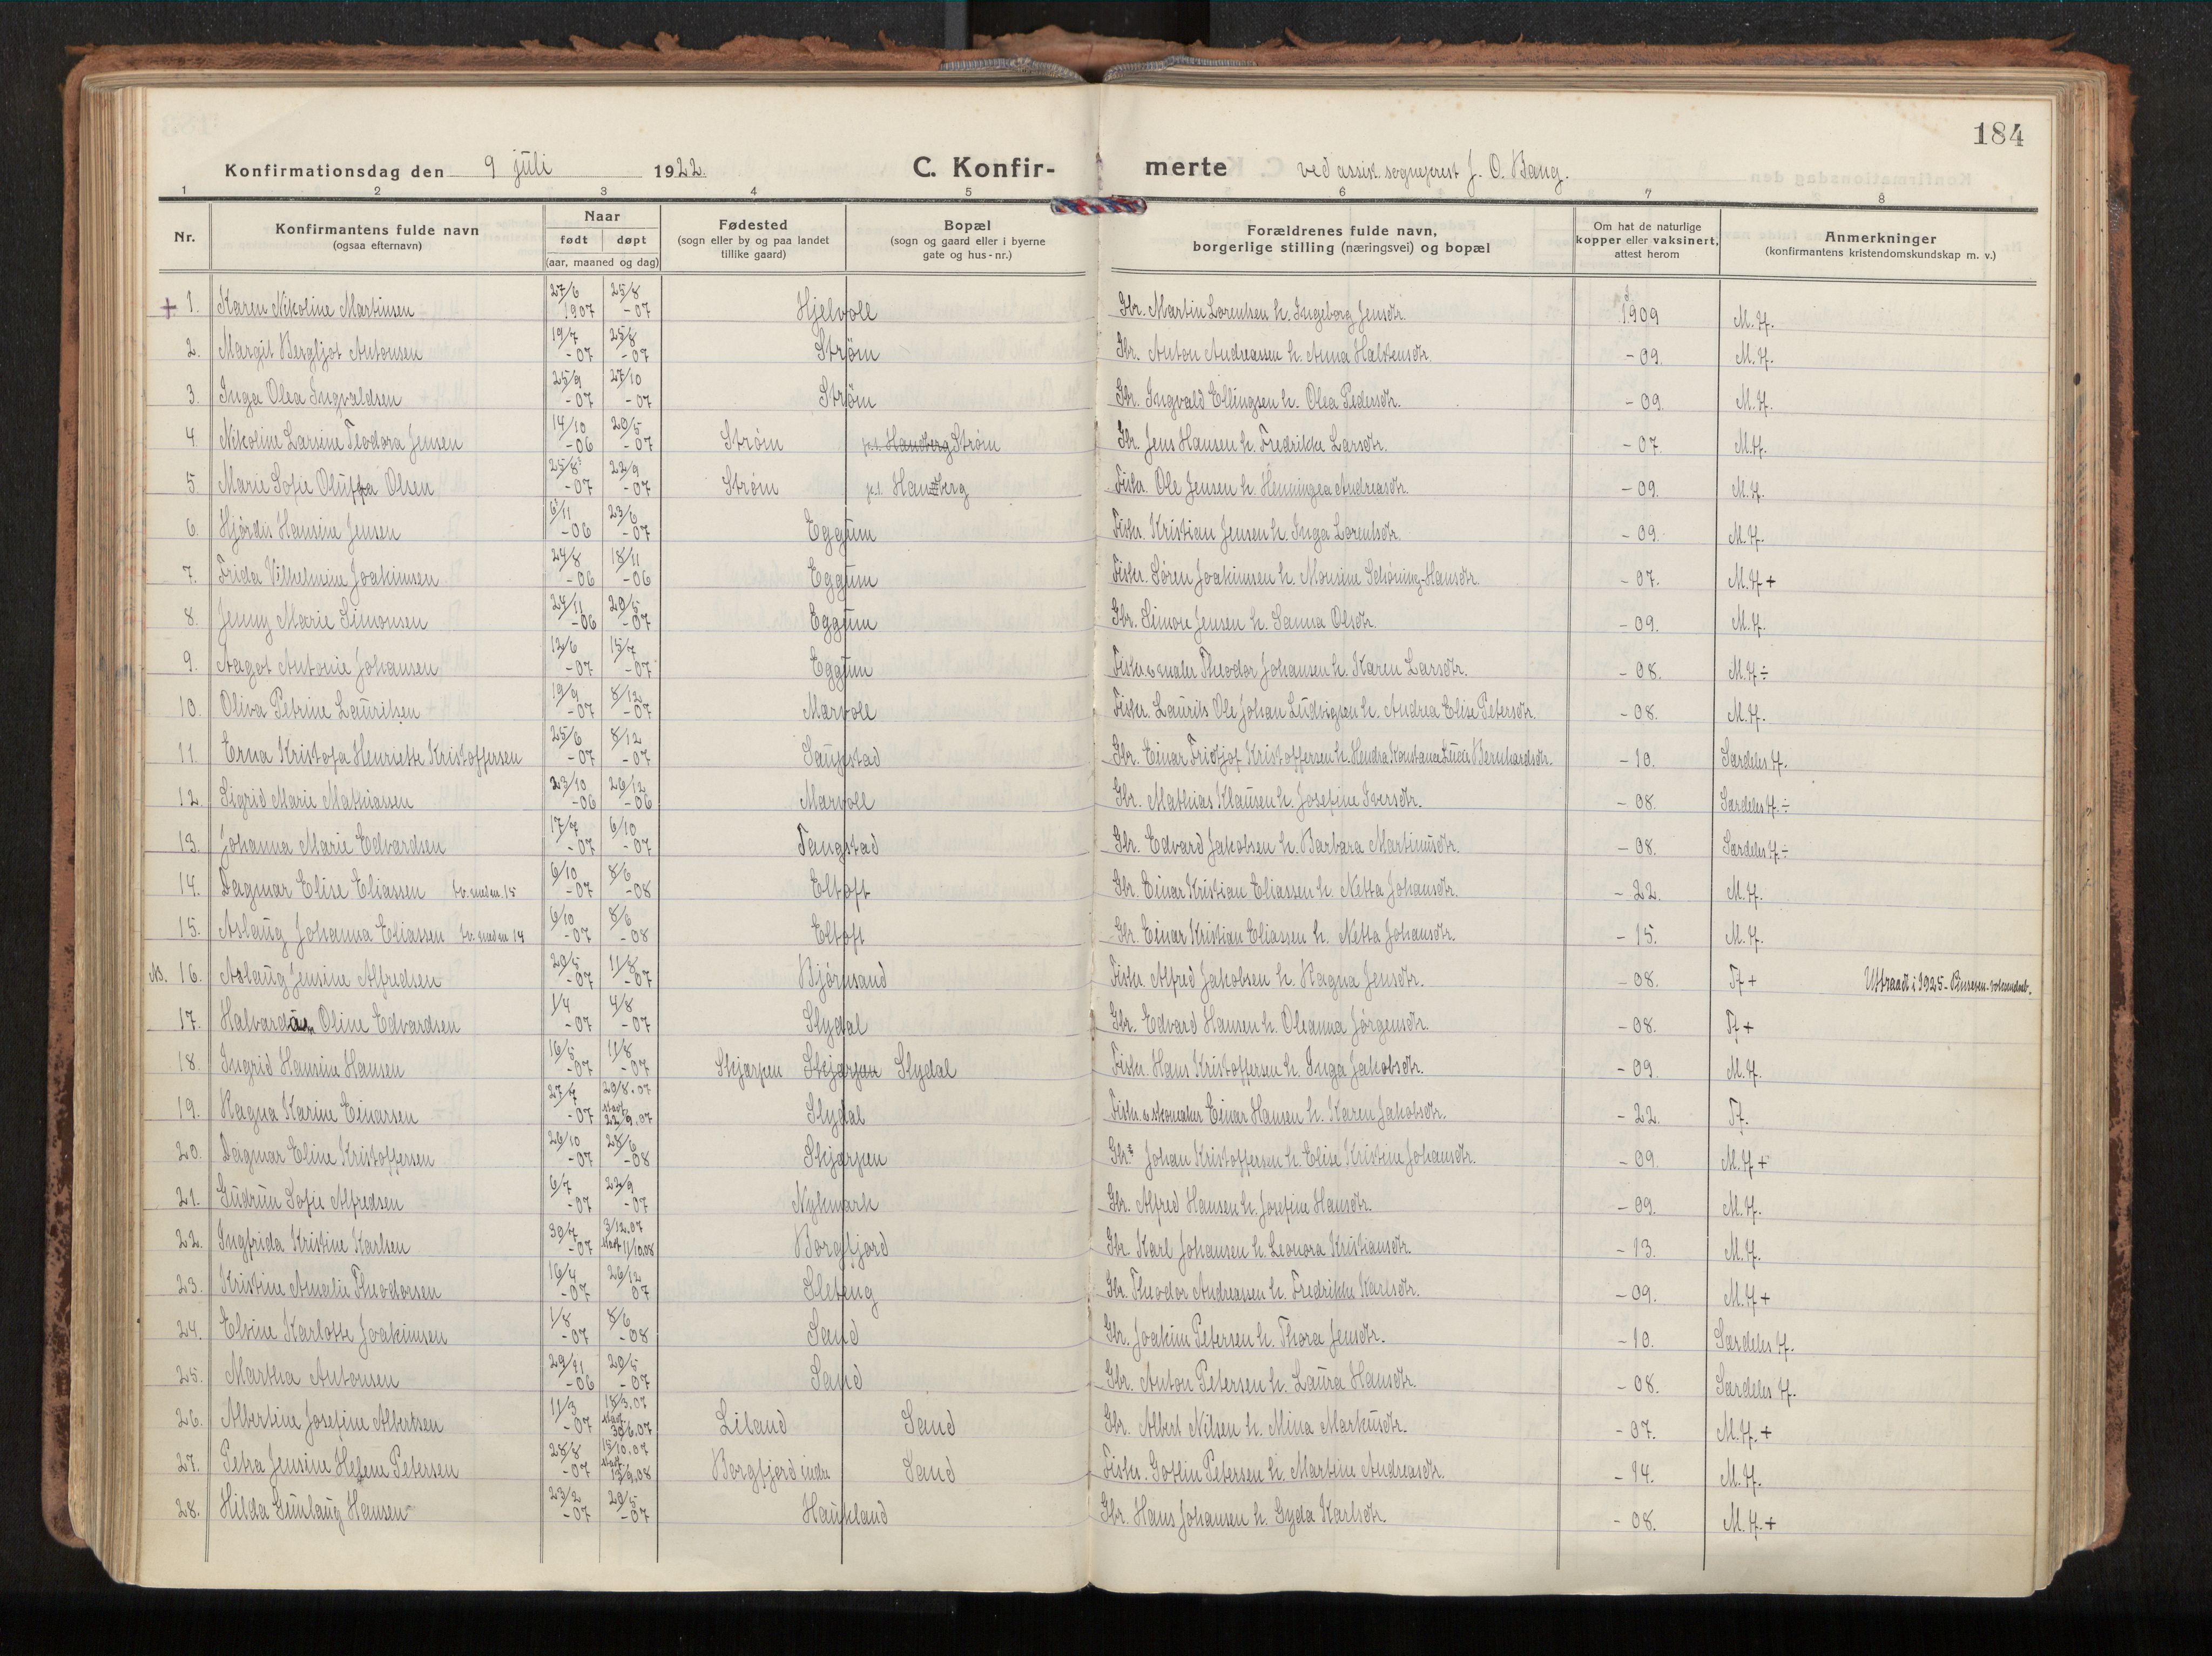 184
Konfirmationsdag den 9 juli 1922. C. Konfirmerte ved assist. sogneprest J. O. Bang.
1 2 3 4 5 6 7 8
Nr. Konfirmantens fulde navn (ogsaa efternavn) Naar født døpt (aar, maaned og dag) Fødested (sogn eller by og paa landet tillike gaard) Bopæl (sogn og gaard eller i byerne gate og hus-nr.) Forældrenes fulde navn, borgerlige stilling (næringsvei) og bopæl Om hat de naturlige kopper eller vaksinert, attest herom Anmerkninger (konfirmantens kristendomskundskap m. v.)
+ 1. Karen Nikoline Martinsen 27/6 1907 25/8 -07 Hjelvoll Gbr. Martin Lorentsen h. Ingeborg Jensdtr. 1909 M.H.
2. Margit Bergljot Antonsen 19/7 -07 25/8 -07 Strøm Gbr. Anton Andreassen h. Anna Halstensdtr. -09. M.H.
3. Inga Olea Ingvaldsen 25/9 -07 27/10 -07 Strøm Gbr. Ingvald Ellingsen h. Olea Pedersdtr. -09. M.H.
4. Nikoline Larsine Teodora Jensen 14/10 -06 20/5 -07 Strøm p.t. Handberg Strøm Gbr. Jens Hansen h. Fredrikke Larsdtr. -07. M.H.
5. Marie Sofie Oluffa Olsen 25/8 -07 22/9 -07 Strøm p.t. Handberg Fisker. Ole Jensen h. Henningea Andreasdtr. -09. M.H.
6. Hjørdis Hansine Jensen 6/11 -06 23/6 -07 Eggum Fisker. Kristian Jensen h. Inga Lorentsdtr. -09. M.H.
7. Frida Vilhelmine Joakimsen 24/8 -06 18/11 -06 Eggum Fisker. Søren Joakimsen h. Monsine Schøning-Hansdtr. -07. M.H +
8. Jenny Marie Simonsen 24/11 -06 20/5 -07 Eggum Gbr. Simon Jensen h. Sanna Olsdtr. -09. M.H.
9. Aagot Antonie Johansen 12/6 -07 15/7 -07 Eggum Fisker. o maler Theodor Johansen h. Karen Larsdtr. -08. M.H ÷
10. Oliva Petrine Lauritsen 19/9 -07 8/12 -07 Marvoll Fisker. Laurits Ole Johan Ludvigsen h. Andrea Elise Petersdtr. -08. M.H.
11. Erna Kristofa Henriette Kristoffersen 25/6 -07 8/12 -07 Saupstad Gbr. Einar Fridtjof Kristoffersen h. Hendra Konstance Lucie Bernhardsdtr. -10. Særdeles H.
12. Sigrid Marie Mathiassen 23/10 -06 26/12 -06 Marvoll Gbr. Mathias Klausen h. Josefine Iversdtr. -08. Særdeles H. ÷
13. Johanna Marie Edvardsen 17/7 -07 6/10 -07 Tangstad Gbr. Edvard Jakobsen h. Barbara Martinusdtr. -08. Særdeles H. ÷
14. Dagmar Elise Eliassen tv. med nr. 15 6/10 -07 8/6 -08 Eltoft Gbr. Einar Kristian Eliassen h. Netta Johansdtr. -22. M.H.
15. Aslaug Johanna Eliassen tv. med nr 14 6/10 -07 8/6 -08 Eltoft Gbr. Einar Kristian Eliassen h. Netta Johansdtr. -15. M.H.
NB. 16. Aslaug Jensine Alfredsen 20/5 -07 11/8 -07 Bjørnsand Fisker. Alfred Jakobsen h. Ragna Jensdtr. -08. T + Uttraadt i 1925-
17. Oline Edvardsen 1/4 -07 4/8 -07 Slydal Gbr. Edvard Hansen h. Oleanna Jørgensdtr. -08. T +
18. Ingrid Hansine Hansen 16/5 -07 11/8 -07 Skjærpen Skjærpen Slydal Fisker. Hans Kristoffersen h. Inga Jakobsdtr. -09. M.H.
19. Ragna Karine Einarsen 27/7 -07 20/8.07 stadf. 22/9.07 Slydal Fisker. o skomaker Einar Hansen h. Karen Jakobsdtr. -22. T.
20. Dagmar Eline Kristoffersen 26/10 -07 28/6 -08 Skjærpen Gbr. Johan Kristoffersen h. Elise Kristine Johansdtr. -09. M.H +
21. Gudrun Sofie Alfredsen 6/7 -07 22/9 -07 Nykmark Gbr. Alfred Hansen h. Josefine Hansdtr. -09. M.H.
22. Ingfrida Kristine Karlsen 30/7 -07 3/12.07 stadf. 11/10.08 Borgfjord Gbr. Karl Johansen h. Leonora Kristiansdtr. -13. M.H.
23. Kristine Amalie Theodorsen 16/4 -07 26/12 07 Sleteng Gbr. Theodor Andreassen h. Fredrikke Karlsdtr. -09. M.H +
24. Elvine Karlotte Joakimsen 1/8 -07 8/6 -08 Sand Gbr. Joakim Petersen h. Thora Jensdtr. -10. Særdeles H.
25. Martha Antonsen 29/11 -06 20/5 -07 Sand Gbr. Anton Petersen h. Laura Hansdtr. -08. Særdeles H.
26. Albertine Josefine Albertsen 11/3 -07 18/3.07 stadf. 30/6.07 Liland Sand Gbr. Albert Nilsen h. Mina Markusdtr. -07. M.H. +
27. Petra Jensine Helene Petersen 28/8 -07 15/10.07 stadf. 13/9.08 Borgfjord indre Sand Fisker. Gotlin Petersen h. Martine Andreasdtr. -14. M.H.
28. Hilda Gunlaug Hansen 23/2 -07 20/5 -07 Haukland Gbr. Hans Johansen h. Gyda Karlsdtr. -08. M.H. +